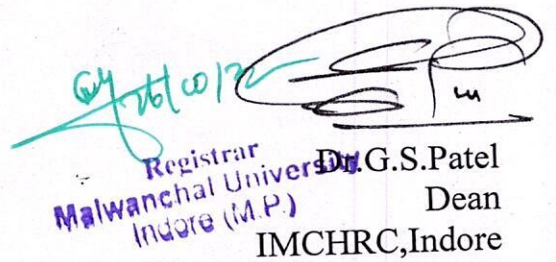 26/10/22
Registrar
Malwanchal University
Indore (M.P.)
Dr.G.S.Patel
Dean
IMCHRC,Indore